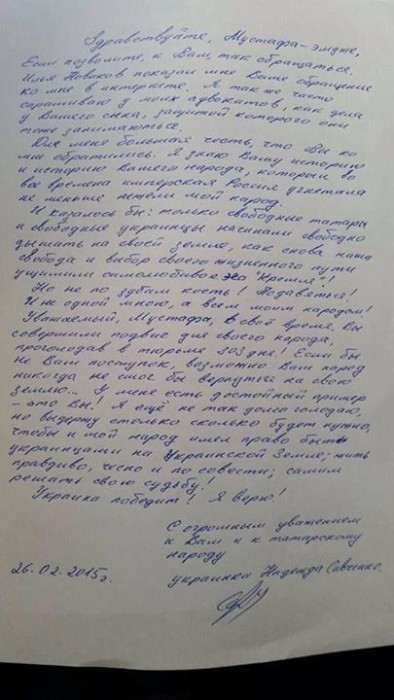 Здравствуйте, Мустафа-эмдже,
Если позволите, к Вам так обращаться.
Илья Новиков показал мне Ваше обращение
ко мне в интернете. Я так же часто
спрашиваю у моих адвокатов, как дела
у Вашего сына, защитой которого они
тоже занимаються.
Для меня большая честь, что Вы ко
мне обратились. Я знаю Вашу историю
и историю Вашего народа, который во
все времена имперская Россия угнетала
не меньше нежели мой народ.
И казалось бы: только свободные татары
и свободные украинцы начинали свободно
дышать на своей земле, как снова наша
свобода и выбор своего жизненного пути
ущимили самолюбивое эго "Кремля"!
Но не по зубам кость! Подавяться!
И не одной мною, а всем моим народом!
Уважаемый, Мустафа, в своё время, Вы
совершили подвиг для своего народа,
проголодав в тюрьме 303 дня! Если бы
не Ваш поступок, возможно Ваш народ
никогда не смог бы вернуться на свою
землю... У меня есть достойный пример
- это Вы! Я ещё не так долго голодаю,
но выдержу столько сколько будет нужно,
чтобы и мой народ имел право быть
украинцами на Украинской Земле; жить
правдиво, чесно и по совести; самим
решать свою судьбу!
Украина победит! Я верю!
С огромным уважением
к Вам и к татарскому
народу
26.02.2015г. украинка Надежда Савченко.